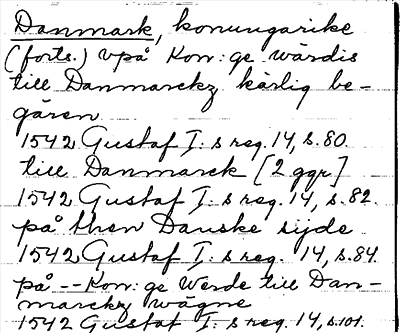 Danmark, konungarike
(forts.) vpå Kon: ge wärdis
till Danmarckz kärlig be-
gären
1542 Gustaf I: s reg. 14, s. 80.
till Danmarck [2 ggr]
1542 Gustaf I: s reg. 14, s. 82.
på then Danske sijde
1542 Gustaf I: s reg. 14, s. 84.
på -- Kon: ge Werde till Dan-
marckz wägne
1542 Gustaf I: s reg. 14, s. 101.